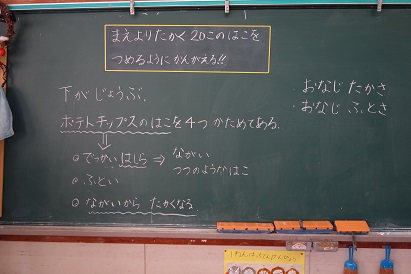 まえよりたかく20このはこを
つめるようにかんがえる!!
下がじょうぶ。
ポテトチップスのはこを4つ かためてある。
○でっかいはしら ⇒ ながい
つつのようなはこ
○ふとい
○ながいから たかくなる
・おなじ たかさ
・おなじ ふとさ